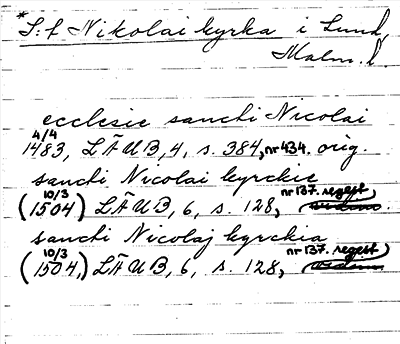 *S:t Nikolai kyrka i Lund,
Malm. l.
ecclesie sancti Nicolai
4/4
1483, LÄUB, 4, s. 384, nr 434. orig.
sancti Nicolai kyrckie
10/3
(1504) LÄUB, 6, s. 128, nr 137. regest)
sancti Nicolaj kyrckia
10/3
(1504) LÄUB, 6, s. 128, nr 137. regest)